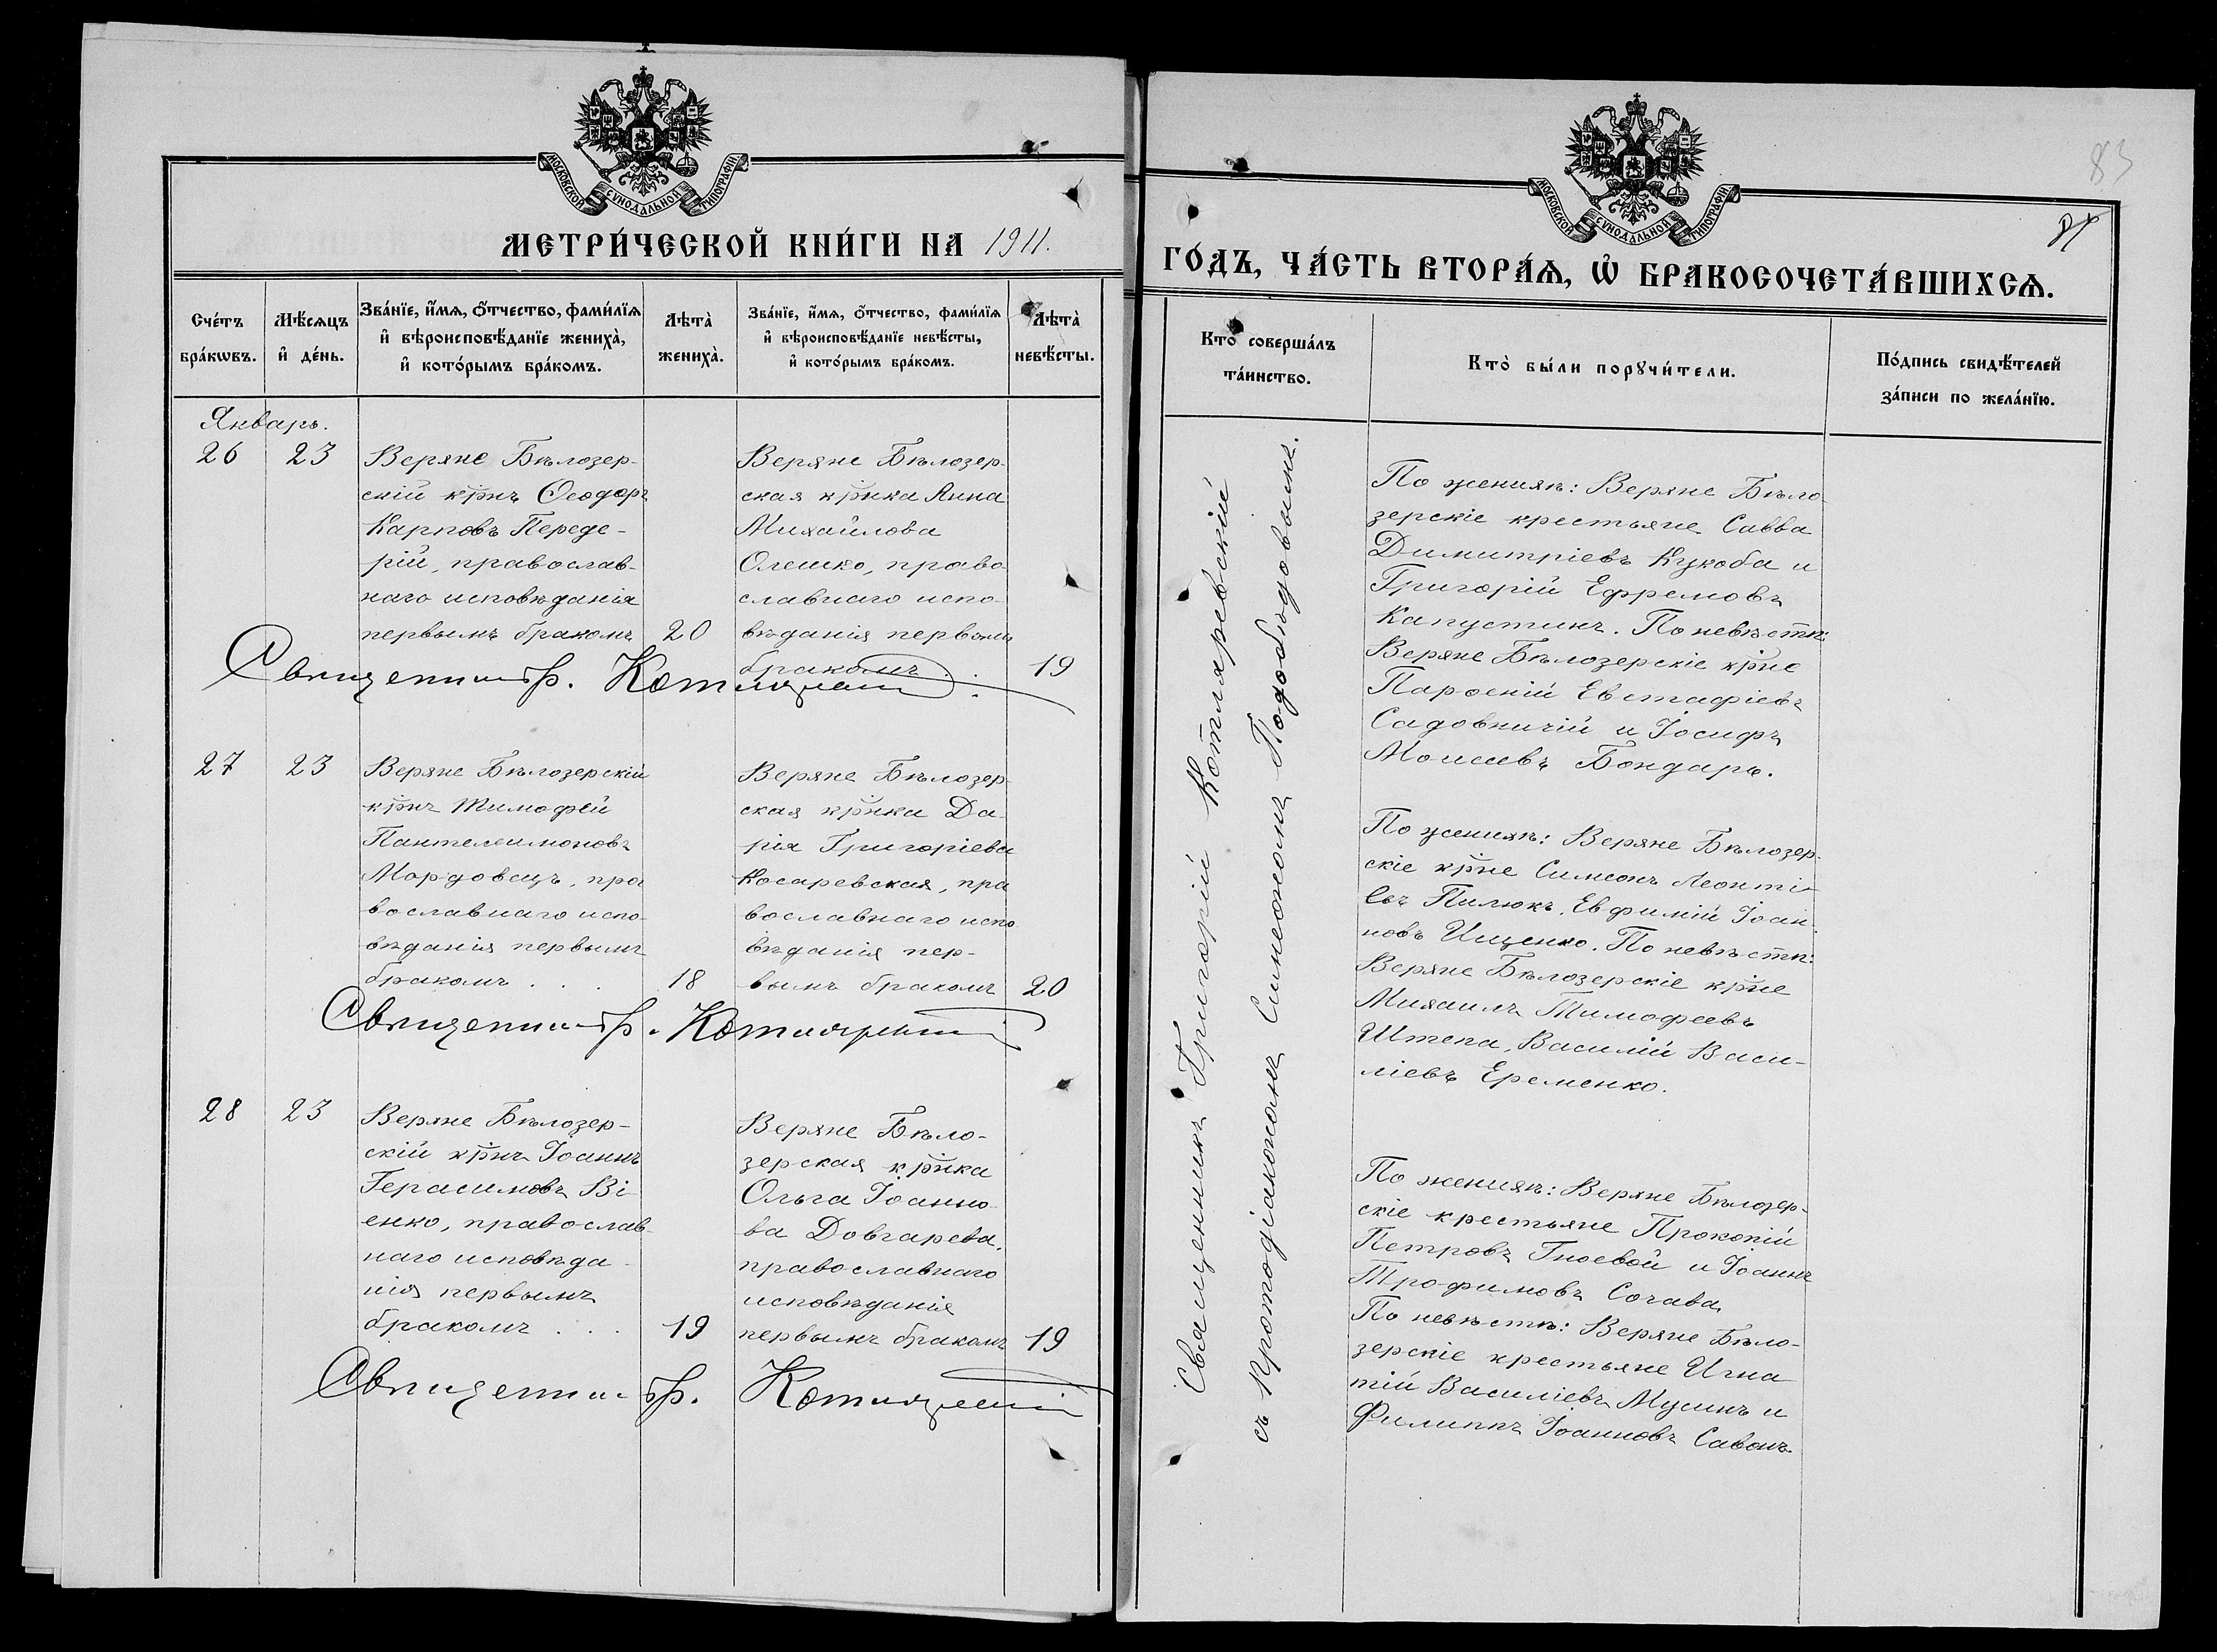 МОСКОВСКОЙ СѴНОДАЛЬНОЙ ТИПОГРАФІИ
МЕТРИ́ЧЕСКОЙ КНИ́ГИ НА 1911.
Сче́тъ бра́кѡвъ.
Мѣ́сяцъ и҆ де́нь.
Зва́нїе, и҆́мѧ, ѻ҆́тчество, фами́лїѧ
и҆ вѣроисповѣ́данїе жениха̀,
и҆ кото́рымъ бра́комъ.
Лѣта̀ жениха̀.
Зва́нїе, и҆́мѧ, ѻ҆́тчество, фами́лїѧ
и҆ вѣроисповѣ́данїе невѣ́сты,
и҆ кото́рымъ бра́комъ.
Лѣта̀ невѣ́сты.
Январь.
26
23
Веряне Бѣлозер-
скій крнъ Ѳеодоръ
Карповъ Переде-
рій, православ-
наго исповѣданія
первымъ бракомъ
20
Веряне Бѣлозер-
ская крнка Анна
Михайлова
Олешко, право-
славнаго испо-
вѣданія первымъ
бракомъ . .
19
Священникъ Гр. Котляревскій
27
23
Веряне Бѣлозерскій
крнъ Тимофей
Пантелеимоновъ
Мордовецъ, пра
вославнаго испо-
вѣданія первымъ
бракомъ . . .
18
Веряне Бѣлозер-
ская крнка Да-
рія Григоріева
Косаревская, пра
вославнаго испо-
вѣданія пер-
вымъ бракомъ
20
Священникъ Гр. Котляревскій
28
23
Веряне Бѣлозер-
скій крнъ Іоаннъ
Герасимовъ Ві
енко, православ-
наго исповѣда-
нія первымъ
бракомъ . . .
19
Веряне Бѣло-
зерская крнка
Ольга Іоанно-
ва Довгарева,
православнаго
исповѣданія
первымъ бракомъ
19
Священникъ Гр. Котляревскій
83
МОСКОВСКОЙ СѴНОДАЛЬНОЙ ТИПОГРАФІИ
ГО́ДЪ, ЧА́СТЬ ВТОРА́Ѧ, Ѡ҆ БРАКОСОЧЕТА́ВШИХСѦ.
Кто̀ соверша́лъ
та́инство.
Кто̀ бы́ли порꙋчи́тели.
По́дпись свидѣ́телей
за́писи по жела́нїю.
Священникъ Григорій Котляревскій
съ Протодіакономъ Симеономъ Подобѣдовымъ.
По женихѣ: Веряне Бѣло-
зерскіе крестьяне Савва
Димитріевъ Кукоба и
Григорій Ефремовъ
Капустинъ. По невѣстѣ:
Веряне Бѣлозерскіе крне
Пароеній Евстафіевъ
Садовничій и Іосифъ
Моисеевъ Бондарь.
По женихѣ: Веряне Бѣлозер-
скіе крне Симеонъ Леонтi-
евъ Пилюкъ, Евфимій Іоан-
новъ Ищенко. По невѣстѣ:
Веряне Бѣлозерскіе крне
Михаилъ Тимофеевъ
Штепа, Василій Васи-
ліевъ Еременко.
По женихѣ: Веряне Бѣлозер-
скіе крестьяне Прокопій
Петровъ Гноевой и Іоаннъ
Трофимовъ Сочава
По невѣстѣ: Веряне Бѣло-
зерскіе крестьяне Игна
тій Василіевъ Мусинъ и
Филиппъ Іоанновъ Савонъ.